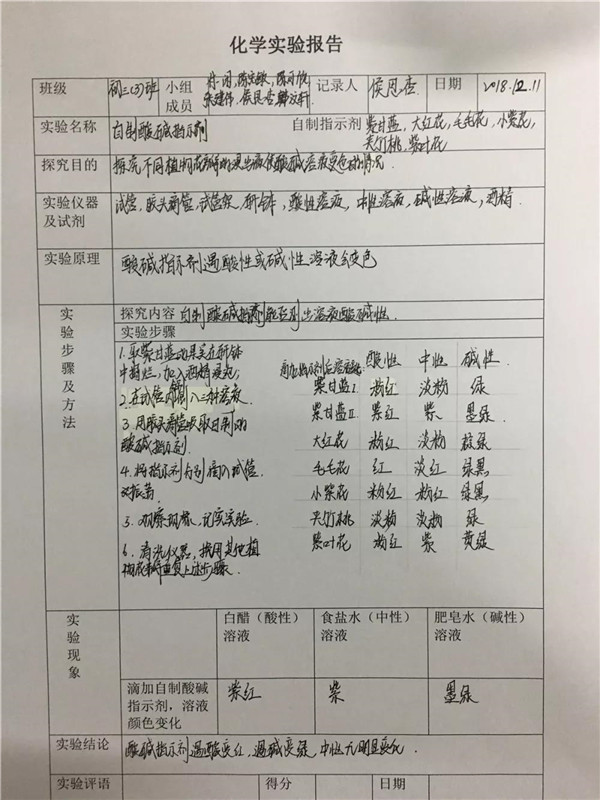 化学实验报告
班级 初三(3)班 小组成员 记录人 侯恩杏 日期 2018.12.11
实验名称 自制酸碱指示剂 自制指示剂 紫甘蓝,大红花,毛毛花,小紫花,
夹竹桃,紫叶花
探究目的 探究不同植物花瓣的浸出液使酸碱溶液变色的情况
实验仪器及试剂 试管,胶头滴管,试管架,研钵,酸性溶液,中性溶液,碱性溶液,酒精.
实验原理 酸碱指示剂遇酸性或碱性溶液会变色
实验步骤及方法
探究内容 自制酸碱指示剂 溶液酸碱性.
实验步骤
1.取紫甘蓝 在研钵
中捣烂,加入酒精浸泡;
2.在试管内倒入三种溶液
3.用胶头滴管吸取自制的
酸碱指示剂.
4.将指示剂分别滴入试管.
并振荡
5.观察现象,记录实验.
6.清洗仪器,换用其他植
物 重复上述步骤.
酸性 中性 碱性.
紫甘蓝I 粉红 淡粉 绿
紫甘蓝II 紫红 紫 墨绿
大红花 粉红 淡粉 绿
毛毛花 红 淡红 绿黑
小紫花 粉红 粉红 绿黑
夹竹桃 淡粉 淡粉 绿
紫叶花 粉红 紫 黄绿
实验现象
白醋(酸性)溶液 食盐水(中性)溶液 肥皂水(碱性)溶液
滴加自制酸碱指示剂,溶液颜色变化 紫红 紫 墨绿
实验结论 酸碱指示剂遇酸变红,遇碱变绿,中性无明显变化.
实验评语 得分 日期